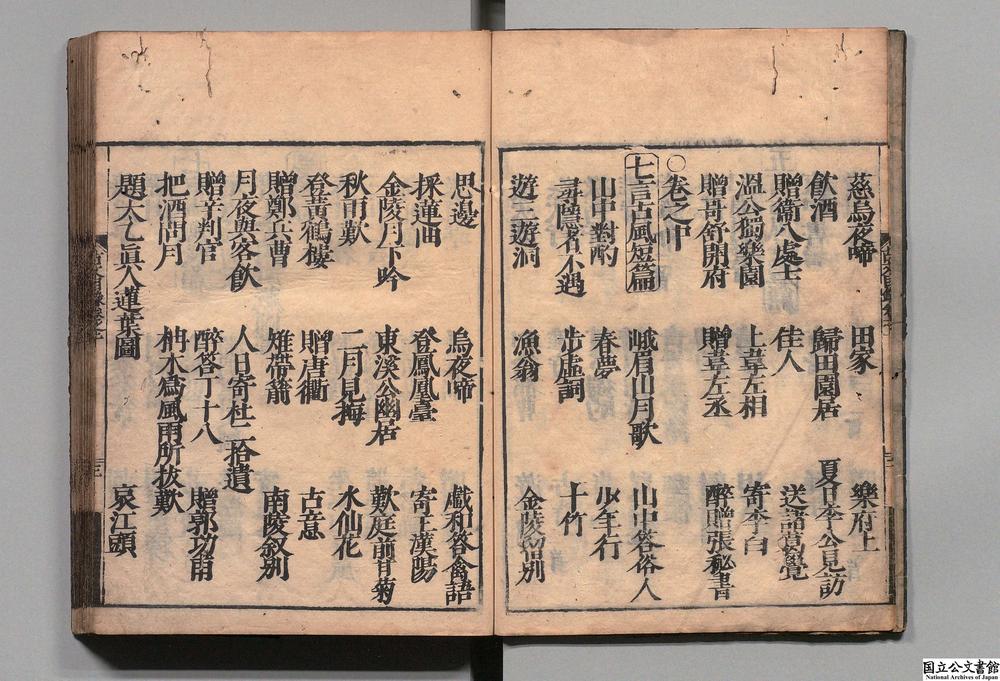 慈烏夜啼 田家 樂府上
飲酒 歸田園居 夏日李公見訪
贈衛八處士 佳人 送諸葛覺
溫公獨樂園 上韋左相 寄李白
贈哥舒開府 贈韋左丞 醉贈張秘書
○卷之中
七言古風短篇 峨眉山月歌 山中答俗人
山中對酌 春夢 少年行
尋隱者不遇 步虛詞 十竹
遊三遊洞 漁翁 金陵留別
思邊 烏夜啼 戲和答禽語
採蓮曲 登鳳凰臺 寄王漢陽
金陵月下吟 東溪公幽居 歎庭前甘菊
秋雨歎 二月見梅 水仙花
登黃鶴樓 贈唐衢 古意
贈鄭兵曹 雉帶箭 南陵敘別
月夜與客飲 人日寄杜二拾遺
贈辛判官 醉答丁十八 贈郭功甫
把酒問月 枏木為風雨所拔歎
題太乙眞人蓮葉圖 哀江頭
国立公文書館
National Archives of Japan